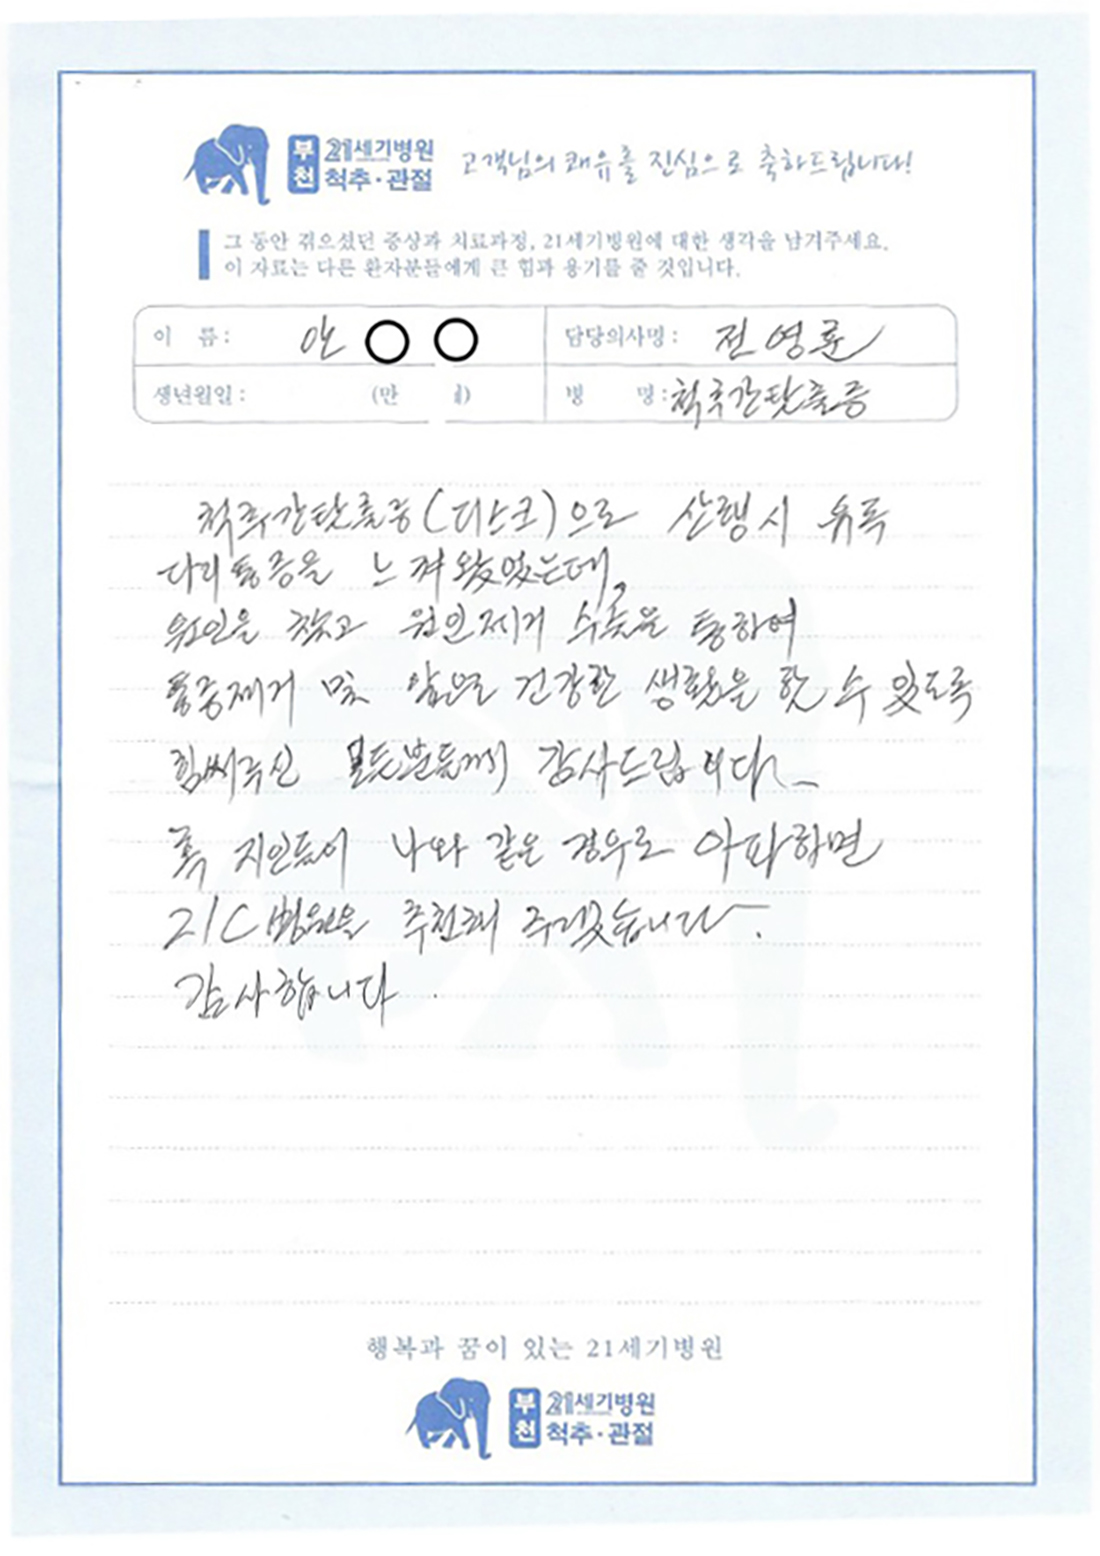 부천 21세기병원 척추·관절 고객님의 쾌유를 진심으로 축하드립니다!
그 동안 겪으셨던 증상과 치료과정, 21세기병원에 대한 생각을 남겨주세요.
이 자료는 다른 환자분들에게 큰 힘과 용기를 줄 것입니다.
이 름: 안 ○ ○ 담당의사명: 전영훈
생년월일: (만 세) 병 명: 척추간탈출증
척추간탈출증(디스크)으로 산행시 유독
다리통증을 느껴왔었는데,
원인을 찾고 원인제거 수술을 통하여
통증제거 및 앞으로 건강한 생활을 할 수 있도록
힘써주신 모든분들께 감사드립니다~
혹 지인들이 나와 같은 경우로 아파하면
21C병원을 추천해 주겠습니다.
감사합니다
행복과 꿈이 있는 21세기병원
부천 21세기병원 척추·관절